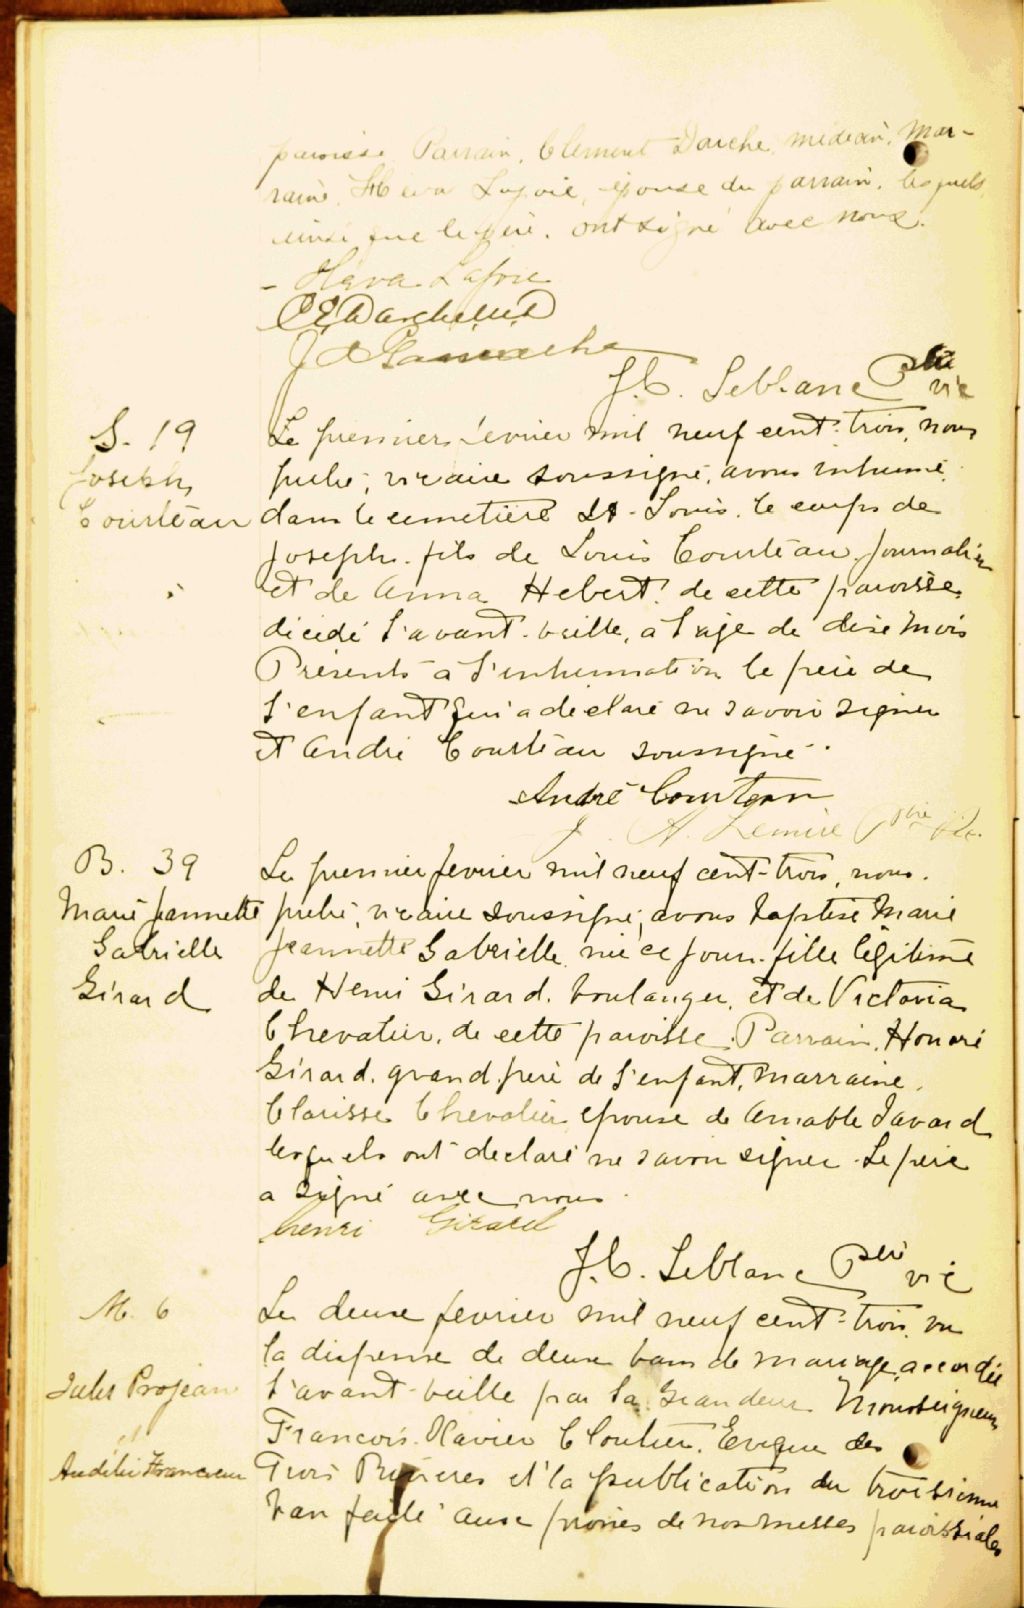 paroisse. Parrain, Clement Darche, médecin, mar-
raine, Héva Lajoie, épouse du parrain, lesquels,
ainsi que le père, ont signé avec nous.
- Héva Lajoie
C E Darche M.D
J A Gamache
J. C. Leblanc Ptre vic
S. 19
Joseph
Courteau
Le premier février mil neuf cent-trois, nous
prêtre, vicaire soussigné, avons inhumé,
dans le cimetière St-Louis, le corps de
Joseph, fils de Louis Courteau, journalier
et de Anna Hebert, de cette paroisse,
décédé l'avant-veille, à l'âge de dix mois
Présents à l'inhumation le père de
l'enfant qui a déclaré ne savoir signer
et André Courteau soussigné.
André Courteau
J. A. Lemire Ptre Vic.
B. 39
Marie Jeannette
Gabrielle
Girard
Le premier fevrier mil neuf cent-trois, nous.
prêtre, vicaire soussigné, avons baptisé Marie
Jeannette Gabrielle, née ce jour, fille légitime
de Henri Girard, boulanger, et de Victoria
Chevalier, de cette paroisse. Parrain, Honoré
Girard, grand-père de l'enfant, marraine,
Clarisse Chevalier, épouse de Amable Savard
lesquels ont déclaré ne savoir signer. Le père
a signé avec nous.
henri Girard
J. C. Leblanc Ptre vic
M. 6
Jules Projean
et
Le deux fevrier mil neuf cent-trois, vu
la dispense de deux bans de mariage, accordée
l'avant-veille par Sa Grandeur Monseigneur
Francois-Xavier Cloutier, Evêque des
Trois Rivières et la publication du troisième
ban faite aux prônes de nos messes paroissiales